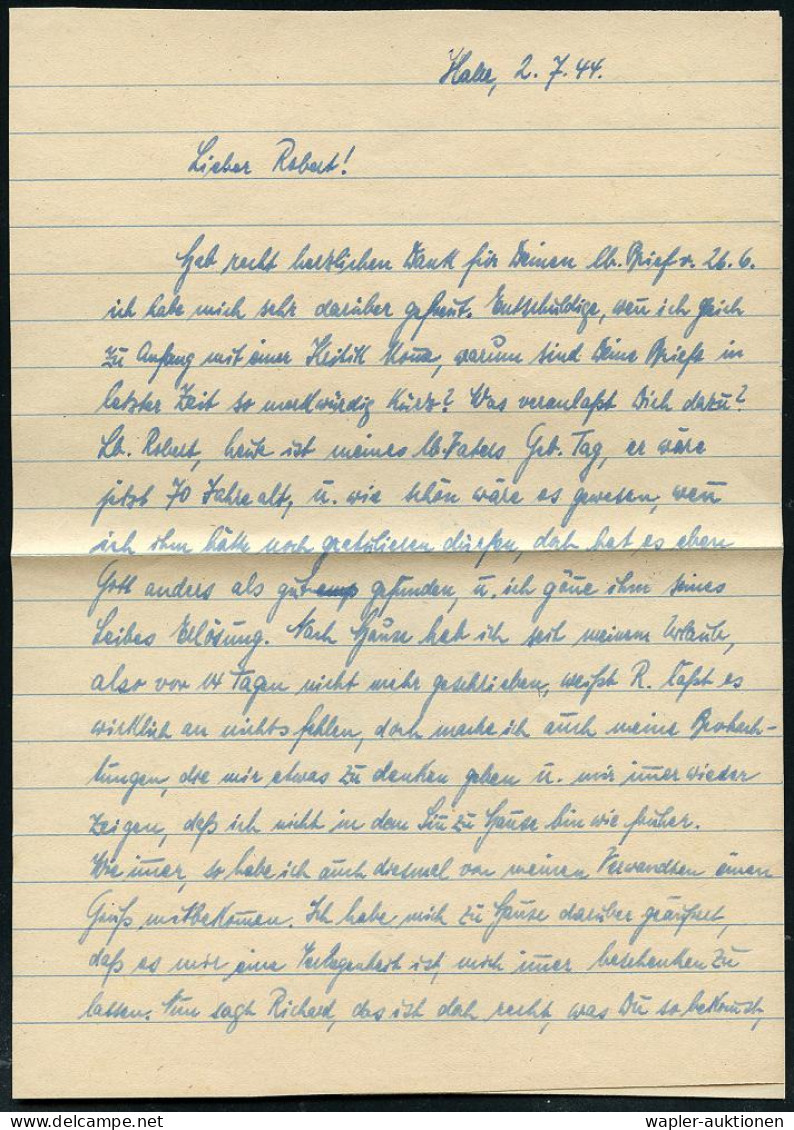 Halle, 2.7.44.
Lieber Robert!
Hab recht herzlichen Dank für Deinen lb. Brief v. 26.6.
ich habe mich sehr darüber gefreut. Entschuldige, wen̄ ich gleich
zu Anfang mit einer Kritik kom̄e, warum sind Deine Briefe in
letzter Zeit so merkwürdig kurz? Was veranlaßt Dich dazu?
Lb. Robert, heute ist meines lb. Vaters Geb. Tag, er wäre
jetzt 70 Jahre alt, u. wie schön wäre es gewesen, wen̄
ich ihm hätte noch gratulieren dürfen, doch hat es eben
Gott anders als gut gefunden, u. ich gön̄e ihm seines
Leibes Erlösung. Nach Hause hab ich seit meinem Urlaub,
also vor 14 Tagen nicht mehr geschrieben, weißt R. läßt es
wirklich an nichts fehlen, doch mache ich auch meine Beobach-
tungen, die mir etwas zu denken geben u. mir im̄er wieder
zeigen, daß ich nicht in dem Sin̄ zu Hause bin wie früher.
Wie im̄er, so habe ich auch diesmal von meinen Verwandten einen
Gruß mitbekom̄en. Ich habe mich zu Hause darüber geäußert,
daß es mir eine Verlegenheit ist, mich im̄er beschenken zu
lassen. Nun sagt Richard, das ist doch recht, was Du so bekom̄st,
wapler-auktionen